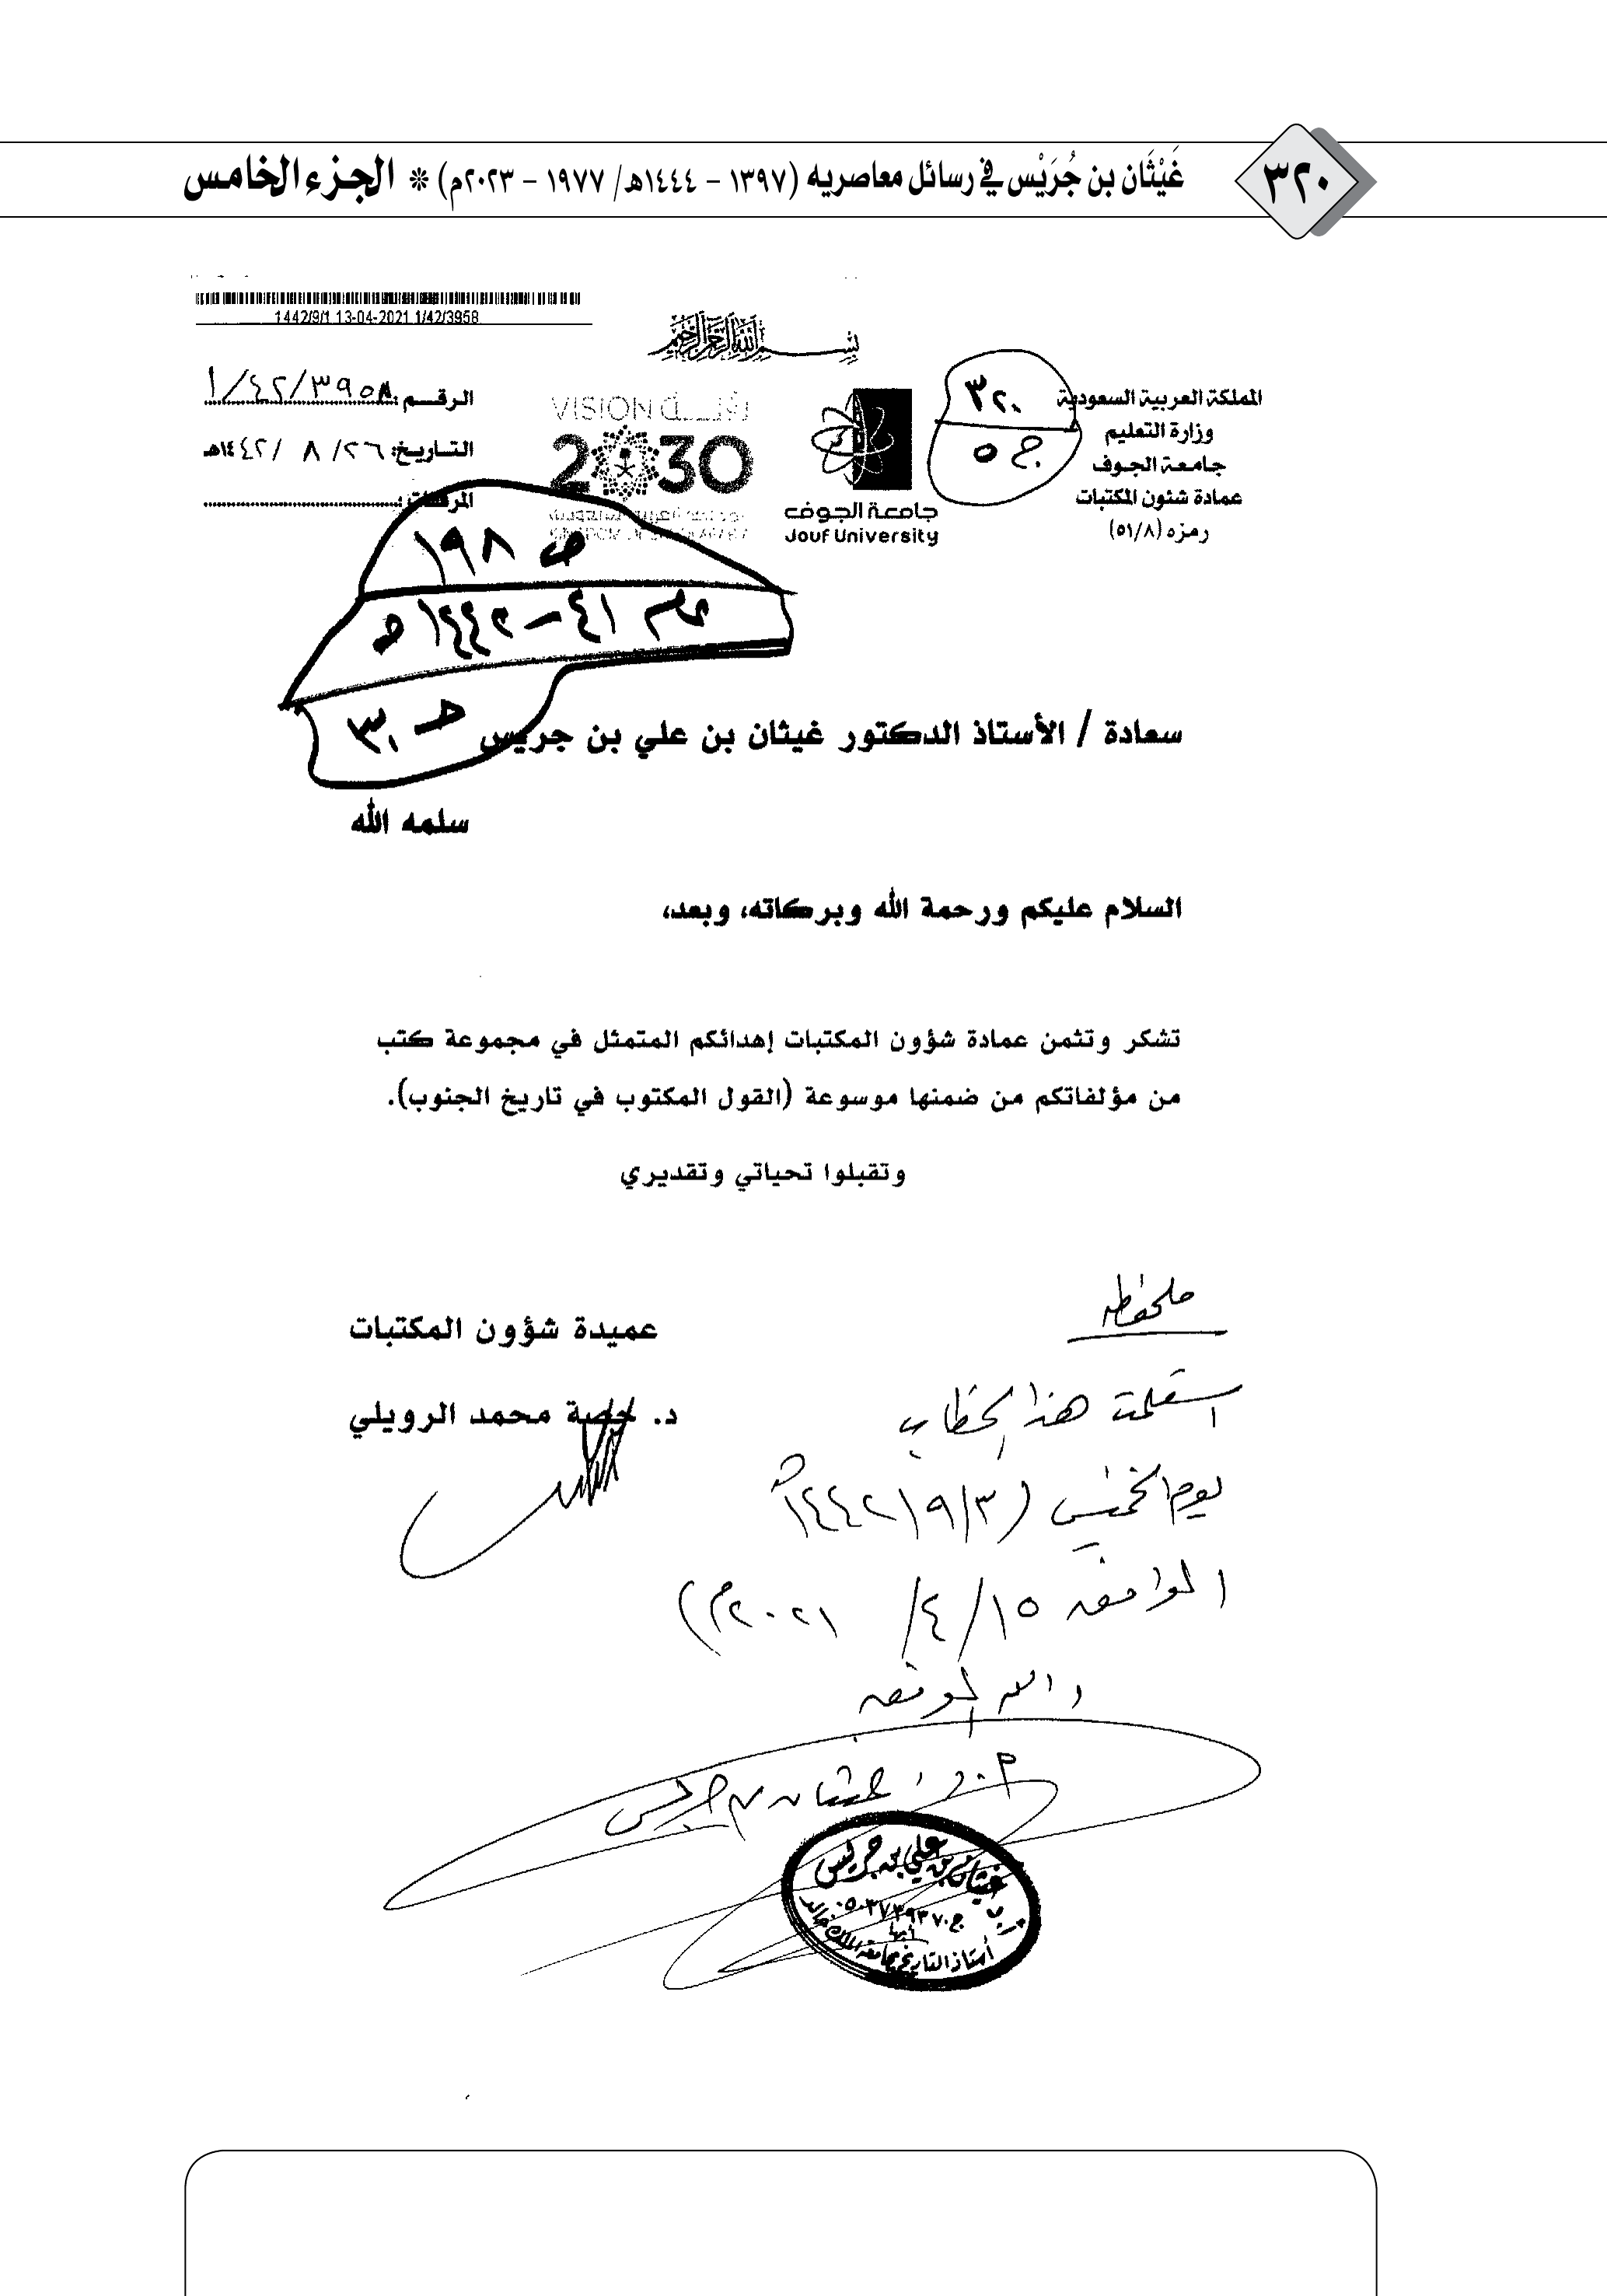 ٣٢٠
غَيْثَان بن جُرَيْس في رسائل معاصريه (١٣٩٧ - ١٤٤٤هـ/ ١٩٧٧ - ٢٠٢٣م) * الجزء الخامس
1442/9/1 13-04-2021 1/42/3958
بسم الله الرحمن الرحيم
المملكة العربية السعودية
وزارة التعليم
جامعة الجوف
عمادة شئون المكتبات
رمزه (٥١/٨)
٣٢٠
ج ٥
جامعة الجوف
Jouf University
VISION رؤيــــة
2030
الرقــم: ١/٤٢/٣٩٥٨
التـاريـخ: ٢٦/ ٨ /١٤٤٢هـ
المرفقات:
ص ١٩٨
عام ٤١ - ١٤٤٢هـ
حـ ٣٠
سعادة / الأستاذ الدكتور غيثان بن علي بن جريس
سلمه الله
السلام عليكم ورحمة الله وبركاته، وبعد،
تشكر وتثمن عمادة شؤون المكتبات إهدائكم المتمثل في مجموعة كتب
من مؤلفاتكم من ضمنها موسوعة (القول المكتوب في تاريخ الجنوب).
وتقبلوا تحياتي وتقديري
عميدة شؤون المكتبات
د. حصة محمد الرويلي
ملحوظة
استلمت هذا الخطاب
يوم الخميس (١٤٤٢/٩/٣هـ
الموافق ١٥/ ٤/ ٢٠٢١م)
والله الموفق
أ.د. غيثان بن جريس
غيثان بن علي بن جريس
أبها
أستاذ التاريخ بجامعة الملك خالد